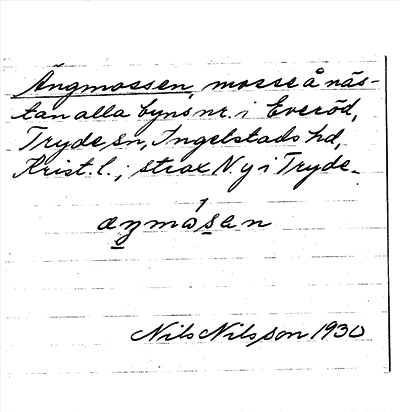 Ängmossen, mosse å näs-
tan alla byns nr. i Everöd,
Tryde sn, Ingelstads hd,
Krist. l.; strax N. y i Tryde.
Nils Nilsson 1930